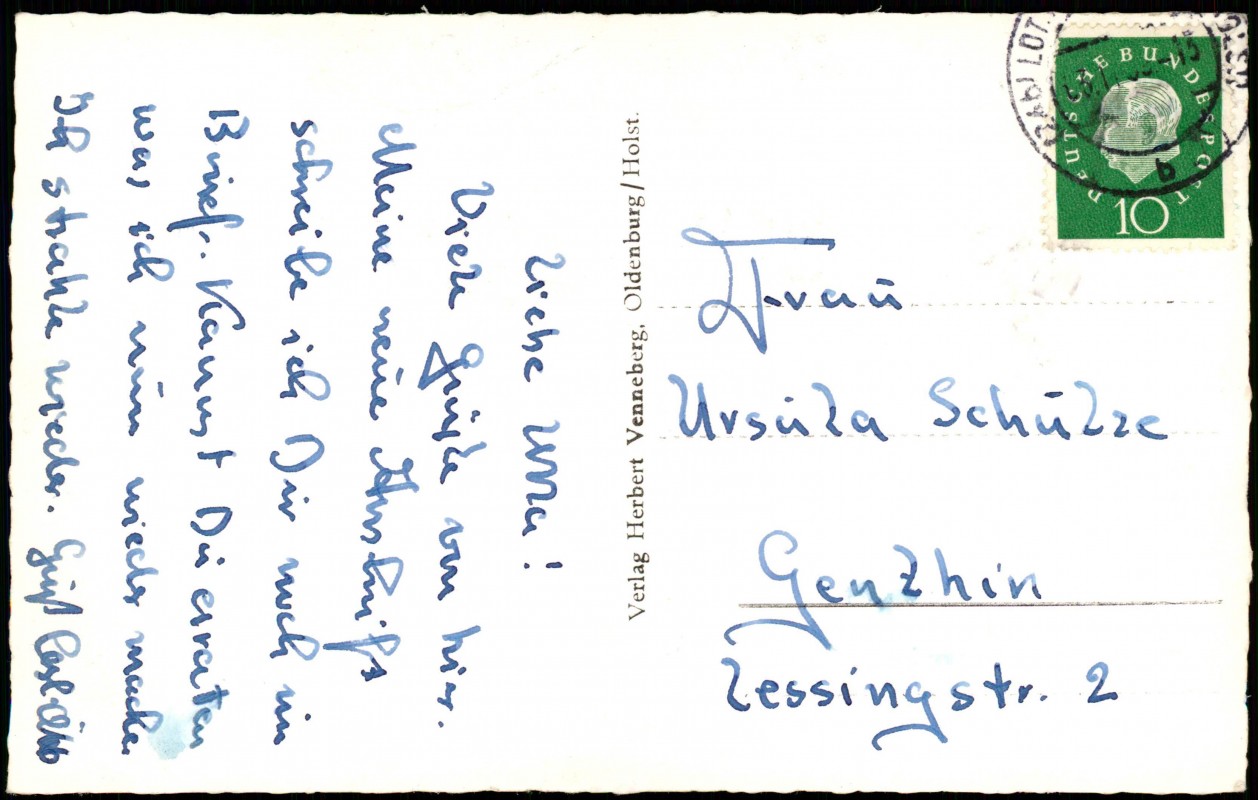 Liebe Ulla!
Viele Grüße von hier.
Meine neue Anschrift
schreibe ich Dir noch im
Brief. Kannst Du erraten
was ich nun wieder mache.
Ich strahle wieder. Gruß
Verlag Herbert Venneberg, Oldenburg/Holst.
DEUTSCHE BUNDESPOST
10
b
Frau
Ursula Schulze
Genthin
Lessingstr. 2